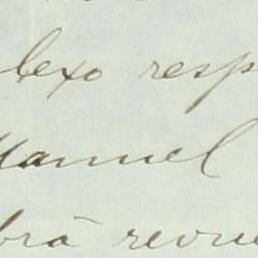 lexo resp
Manuel
brá revue